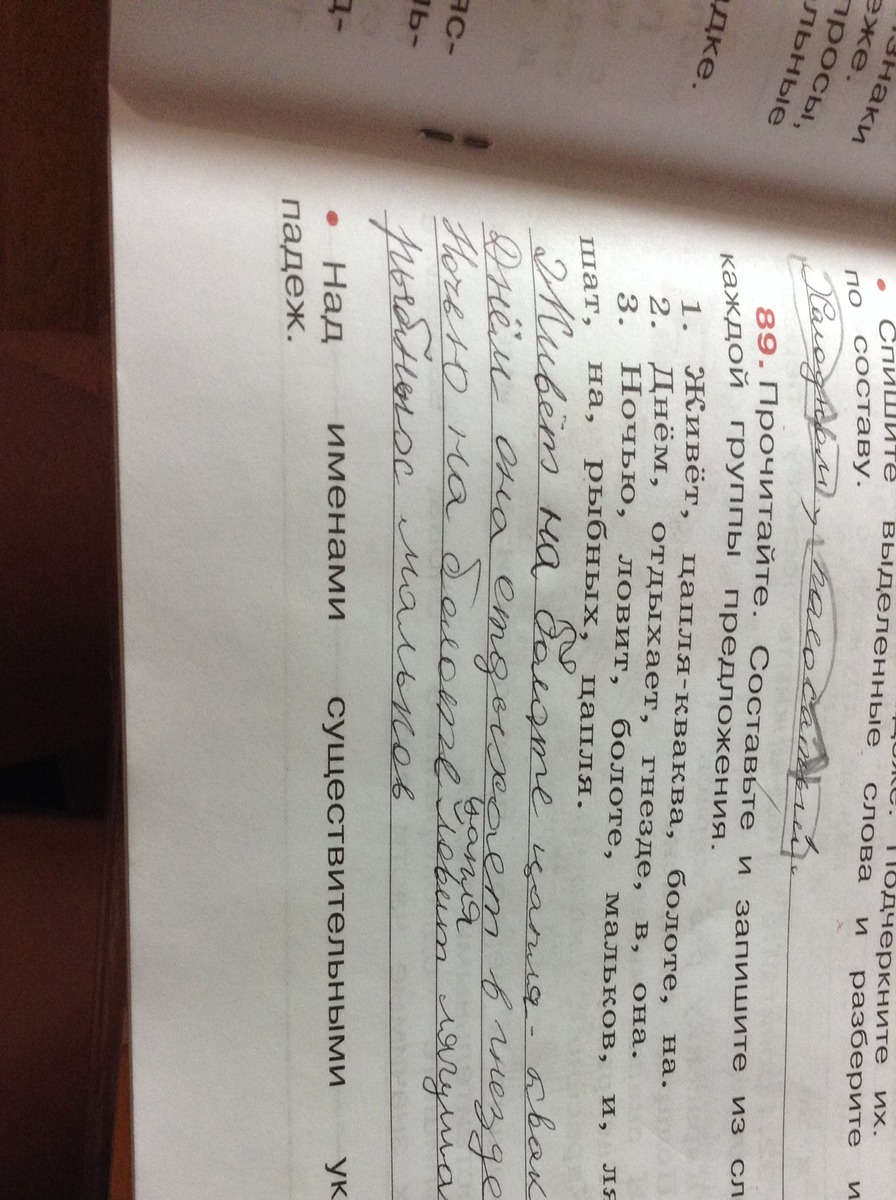 знаки
еже.
просы,
льные
дке.
яс-
ль-
д-
Подчеркните их.
• Спишите выделенные слова и разберите и
по составу.
89. Прочитайте. Составьте и запишите из сл
каждой группы предложения.
1. Живёт, цапля-кваква, болоте, на.
2. Днём, отдыхает, гнезде, в, она.
3. Ночью, ловит, болоте, мальков, и, ля
шат, на, рыбных, цапля.
Живёт на болоте цапля-квак
Днём она отдыхает в гнезде
цапля
Ночью на болоте ловит лягуша
рыбных мальков
• Над именами существительными ук
падеж.